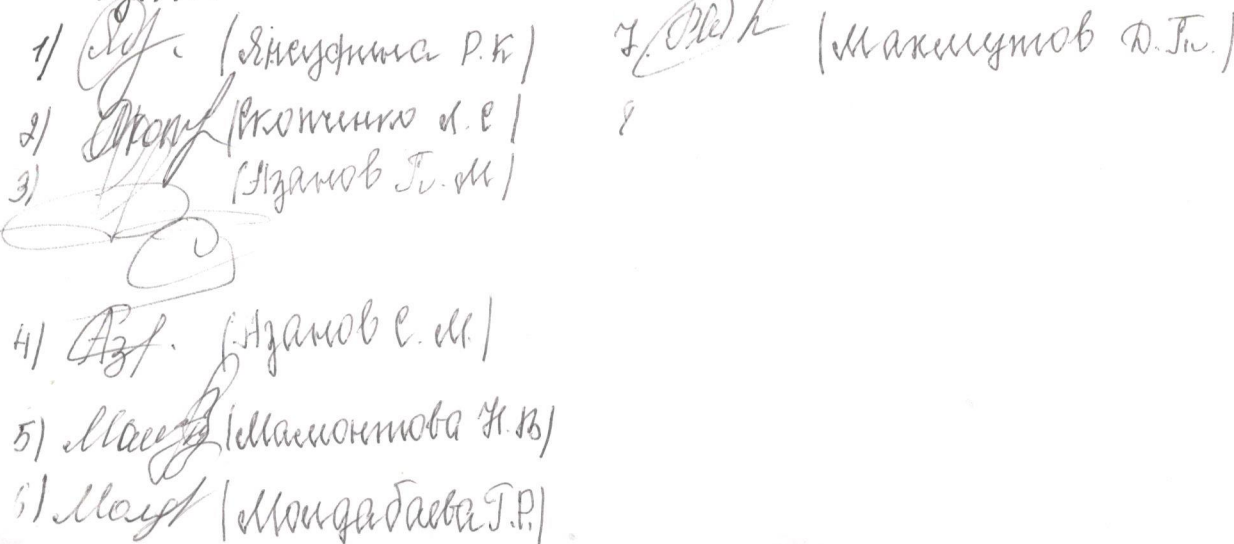 1) (Янсуфина Р.К)
2) (Скопченко Л.С)
3) (Азанов П. М)
4) (Азанов С. М.)
5) (Мамонтова Н.В)
6) (Молдабаева Г.Р.)
7. (Макмутов Д. Гл.)
8